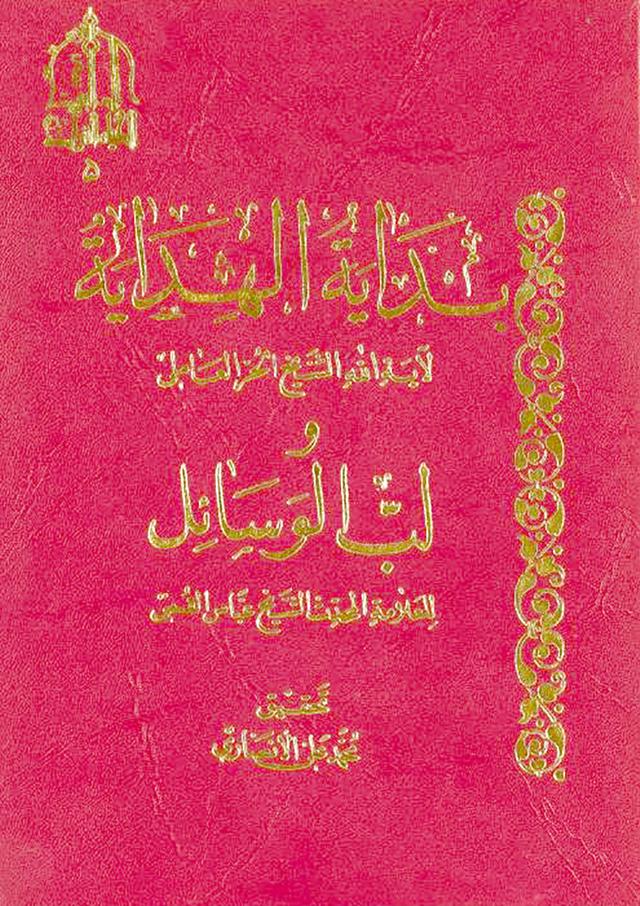 ٥
بِدَايَةُ الْهِدَايَةُ
لآية الله الشيخ الحر العاملي
و
لبّ الوَسَائِل
للعلامة المحدث الشيخ عباس القمي
تحقيق
محمد علي الأنصاري